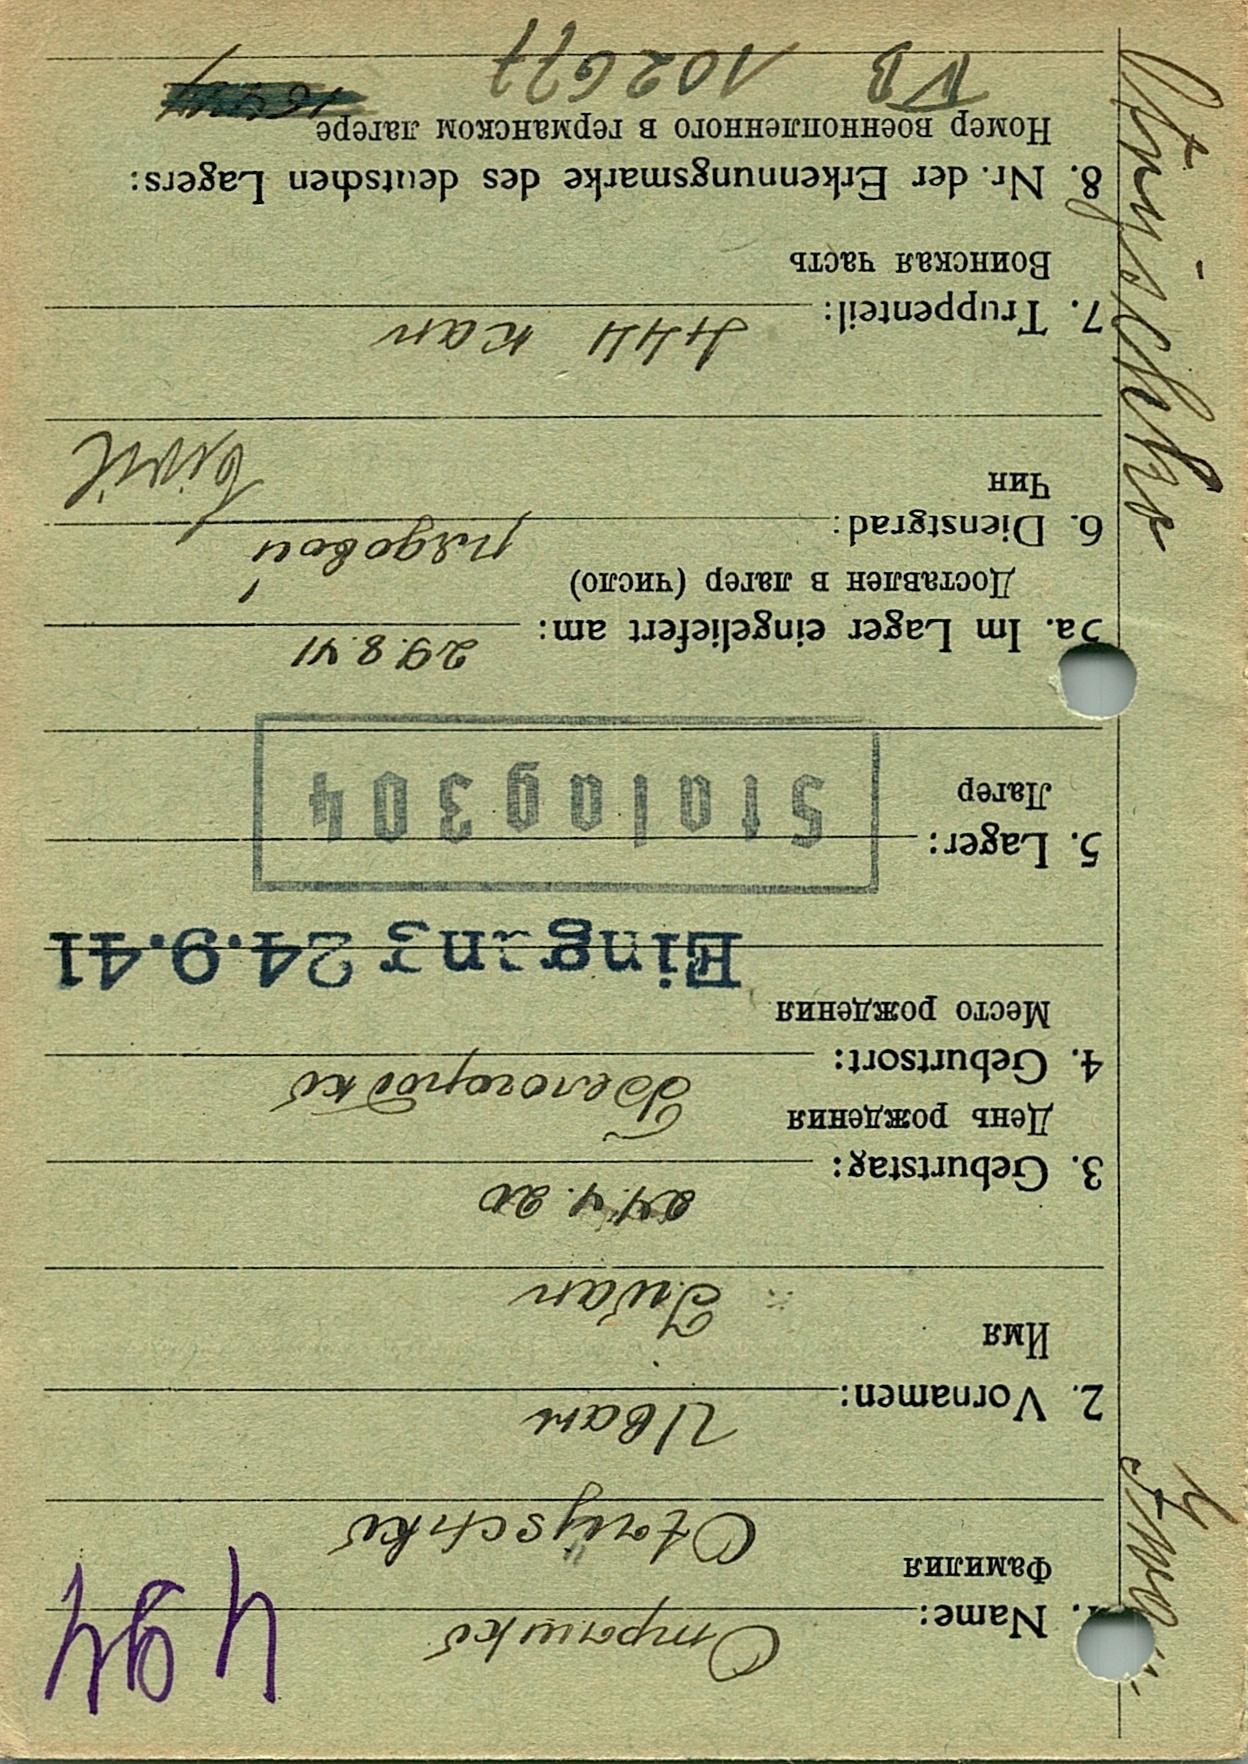 494
1. Name: Отрошко
Фамилия
Otrijschko
2. Vornamen: Иван
Имя
Iwan
3. Geburtstag: 24.4.20
День рождения
4. Geburtsort: Белогородко
Место рождения
Eingang 24.9.41
5. Lager:
Лагер
Stalag 304
5a. Im Lager eingeliefert am: 29.8.41
Доставлен в лагер (число)
6. Dienstgrad: рядовой
Чин
Zivil
7. Truppenteil: 444 кап
Воинская часть
8. Nr. der Erkennungsmarke des deutschen Lagers:
Номер военнопленного в германском лагере
VB 102677
Otrijschko
Iwan